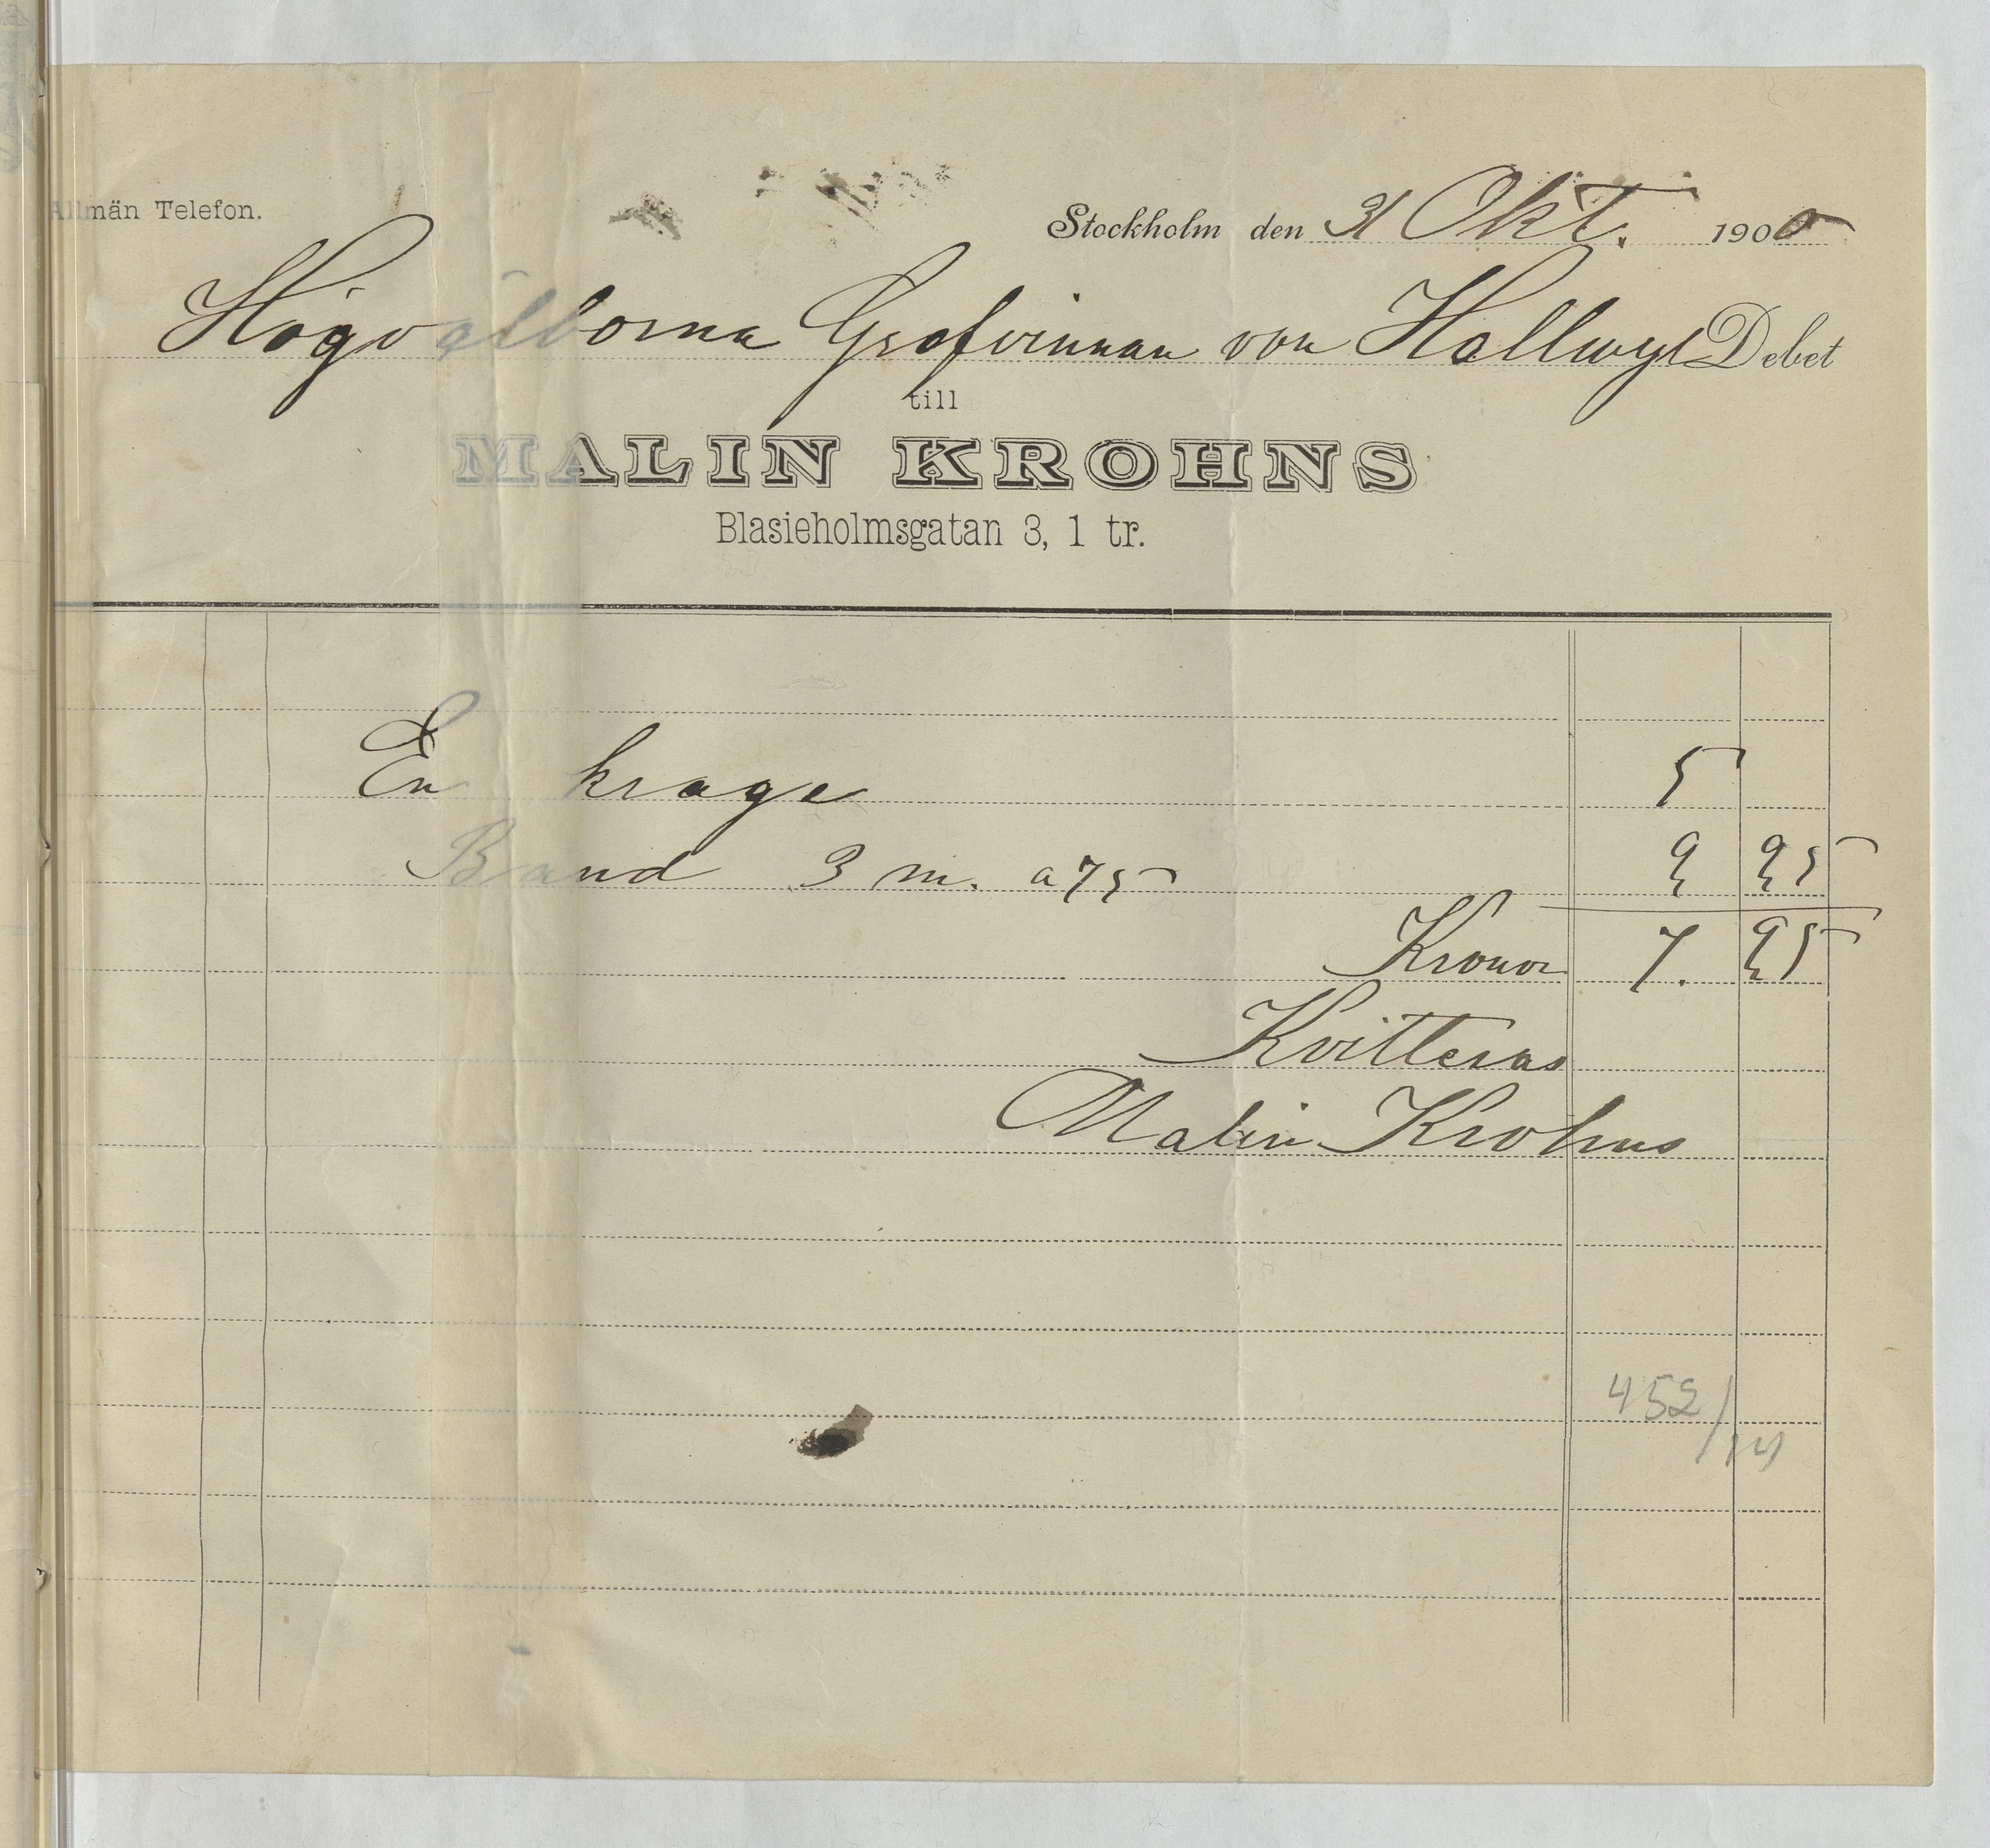 Allmän Telefon.
Stockholm den 31 Okt. 1900
Högvälborna Grefvinnan von Hallwyl Debet
till
MALIN KROHNS
Blasieholmsgatan 3, 1 tr.
En krage 5
Band 3 m. a 75 2 25
Kronor 7. 25
Kvitteras
Malin Krohns
452/